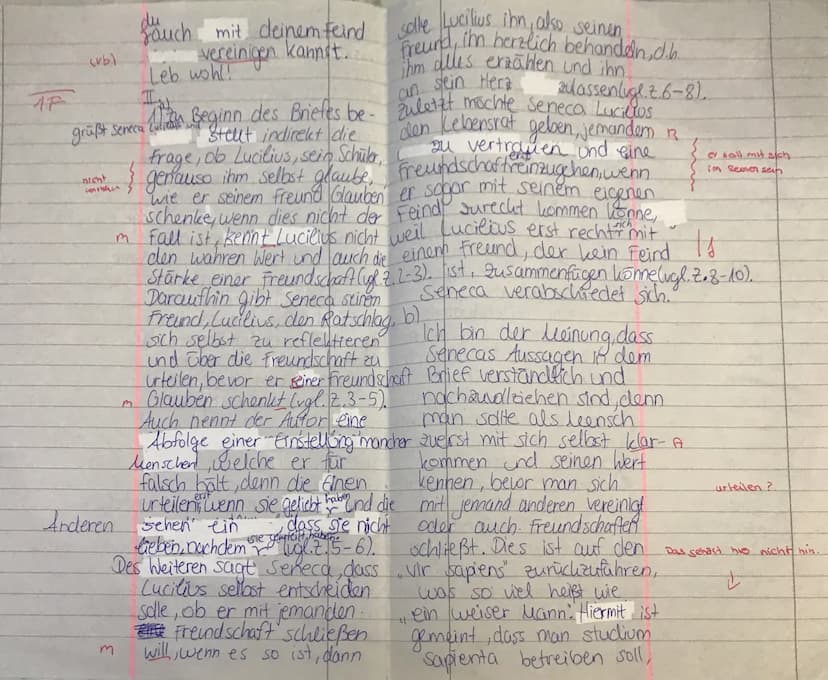 du
auch mit deinem Feind
(vb) vereinigen kannst.
Leb wohl!
1F
II
1) Zu Beginn des Briefes be-
grüßt Seneca Lucilius und stellt indirekt die
Frage, ob Lucilius, sein Schüler,
nicht genauso ihm selbst glaube,
wie er seinem Freund Glauben
schenke, wenn dies nicht der
m Fall ist, kennt Lucilius nicht
den wahren Wert und auch die
Stärke einer Freundschaft (vgl. Z. 2-3).
Daraufhin gibt Seneca seinen
Freund, Lucilius, den Ratschlag,
sich selbst zu reflektieren
und über die Freundschaft zu
urteilen, bevor er einer Freundschaft
m Glauben schenkt (vgl. Z. 3-5).
Auch nennt der Autor eine
Abfolge einer "Einstellung" mancher
Menschen, welche er für
falsch hält, denn die Einen
urteilen erst, wenn sie geliebt haben und die
Anderen sehen ein, dass sie nicht
lieben, nachdem sie geurteilt haben (vgl. Z. 5-6).
Des Weiteren sagt Seneca, dass
Lucilius selbst entscheiden
solle, ob er mit jemanden
Freundschaft schließen
m will, wenn es so ist, dann
solle Lucilius ihn, also seinen
Freund, ihn herzlich behandeln, d.h.
ihm alles erzählen und ihn
an sein Herz zulassen (vgl. Z. 6-8).
Zuletzt möchte Seneca Lucilios
den Lebensrat geben, jemandem R
zu vertrauen und eine er soll mit sich
Freundschaft einzugehen, wenn im Reinen sein
er sogar mit seinem eigenen
Feind zurecht kommen könne,
weil Lucilius erst recht sich mit
einem Freund, der kein Feind
ist, zusammenfügen könne (vgl. Z. 8-10).
Seneca verabschiedet sich.
b)
Ich bin der Meinung, dass
Senecas Aussagen in dem
Brief verständlich und
nachzuvollziehen sind, denn
man sollte als Mensch
zuerst mit sich selbst klar- A
kommen und seinen Wert
kennen, bevor man sich urteilen?
mit jemand anderen vereinigt
oder auch Freundschaften
schließt. Dies ist auf den Das gehört hier nicht hin.
„vir sapiens" zurückzuführen,
was so viel heißt wie
„ein weiser Mann". Hiermit ist
gemeint, dass man studium
sapienta betreiben soll,